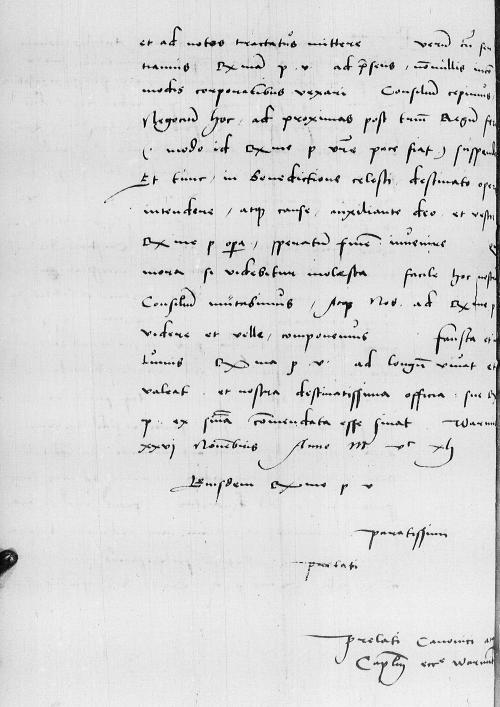 et ad notos tractatus mittere verum cum
tiamus D x mam p v ad p̄sens, nonnullis
modis corporalibus vexari Consilium cepimus
Negocium hoc, ad proximas post trium Regum
(modo id D x me p vr̄e pace fiat) suspend
Et tunc, in benedictione celesti, destinato oper
intendere, atq cause, auxiliante deo, et vestr
D x me p opa, speratum finem invenire
mora si videbitur molesta facile hoc nostr
Consilium mutabimus, Atq Nos, ad D x me p
videre et velle, componemus fausta et
tunis D x ma p v ad longum vivat et
valeat et nostra destinatissima officia
p ex s̄ma com̄endata esse sinat Warmi
xxvi Novembris Anno M vc xli
Eiusdem D x me p v
paratissimi
prelati
Prelati Canonici
Caplm ecce Warmi